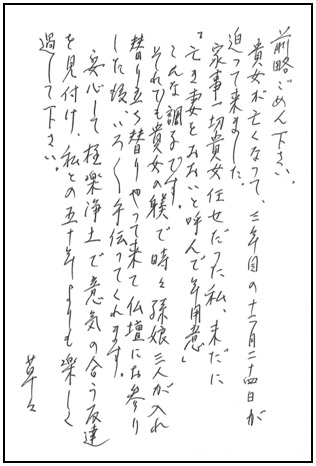 前略ごめん下さい。
貴女が亡くなって、三年目の十一月二十四日が
迫って来ました。
家事一切貴女任せだった私、未だに
「亡き妻とおおいと呼んで年用意」
こんな調子です。
それでも貴女の躾で時々孫娘三人が入れ
替り立ち替りやって来て仏壇にお参り
した後、いろいろ手伝ってくれます。
安心して極楽浄土で意気の合う友達
を見付け、私との五十年よりも楽しく
過して下さい。
草々